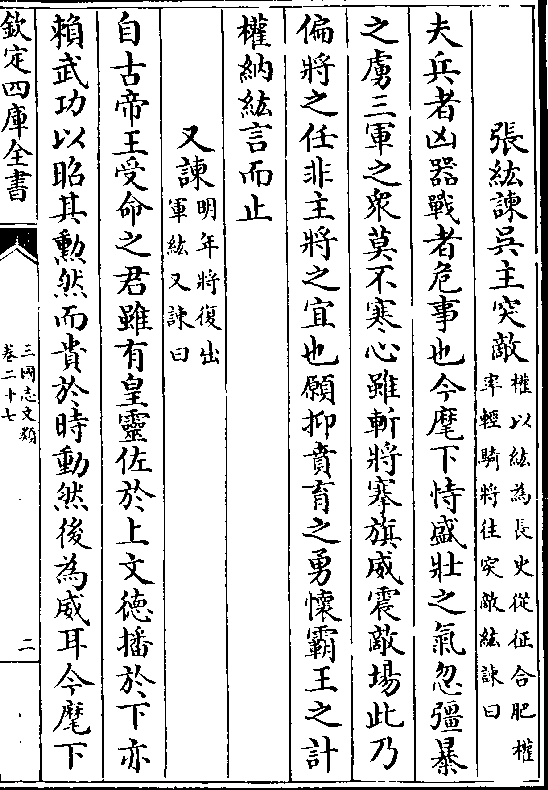 張紘諫吳主突敵權以紘為長史從征合肥權
率輕騎將往突敵紘諫曰
夫兵者凶器戰者危事也今麾下恃盛壯之氣忽彊暴
之虜三軍之衆莫不寒心雖斬將搴旗威震敵場此乃
偏將之任非主將之宜也願抑賁育之勇懷霸王之計
權納紘言而止
又諫明年將復出
軍紘又諫曰
自古帝王受命之君雖有皇靈佐於上文德播於下亦
賴武功以昭其勳然而貴於時動然後為威耳今麾下
欽定四庫全書
三國志文類
卷二十七
二